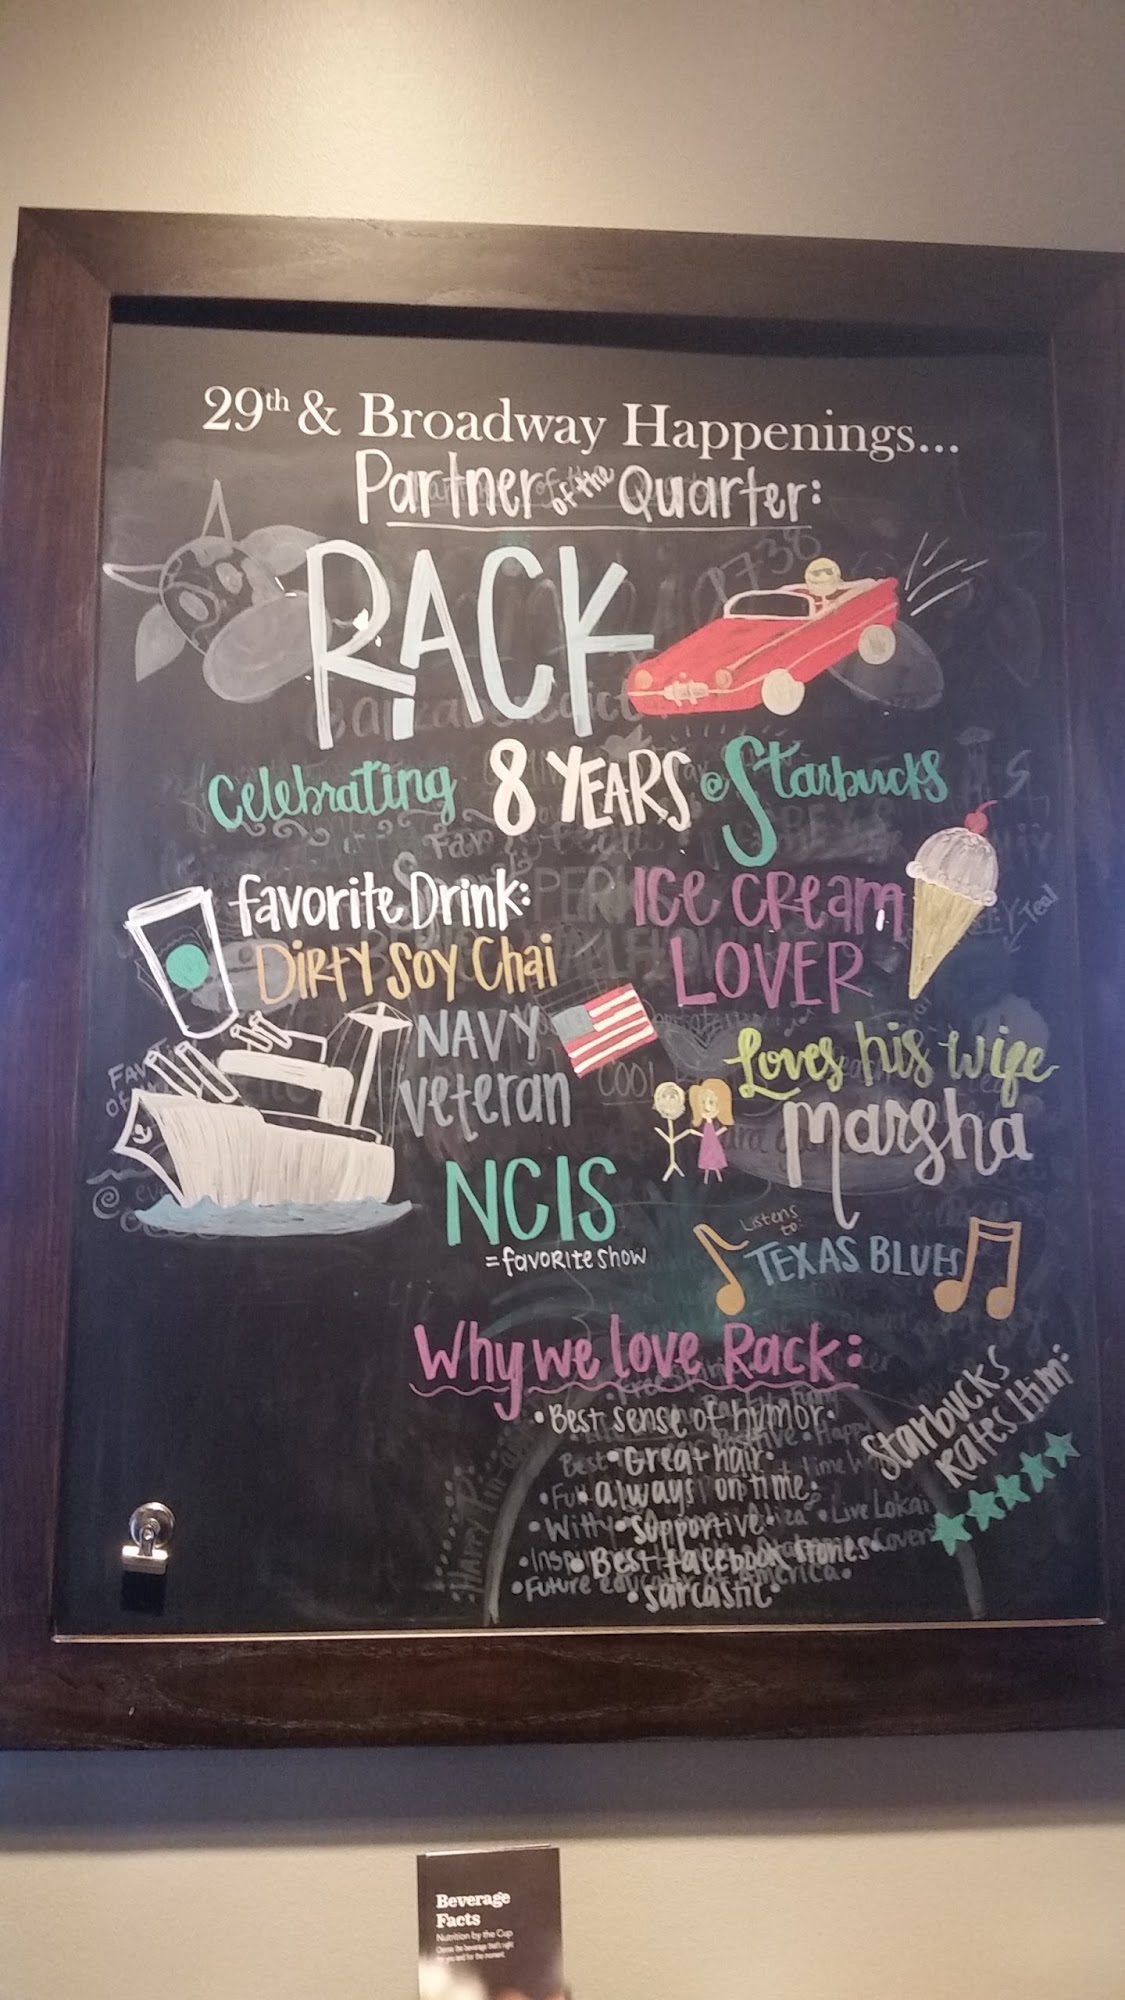 29th & Broadway Happenings...
Partner of the Quarter:
RACK
Celebrating 8 YEARS @ Starbucks
favorite Drink:
Dirty Soy Chai
Ice cream
LOVER
NAVY
veteran
Loves his wife
Marsha
NCIS
=favorite show
Listens
to:
TEXAS BLUES
Why we love Rack:
• Best sense of humor •
• Great hair •
• always on time •
• Supportive •
• Best facebook stories •
• Sarcastic •
Starbucks
Rates Him:
Beverage
Facts
Nutrition by the Cup